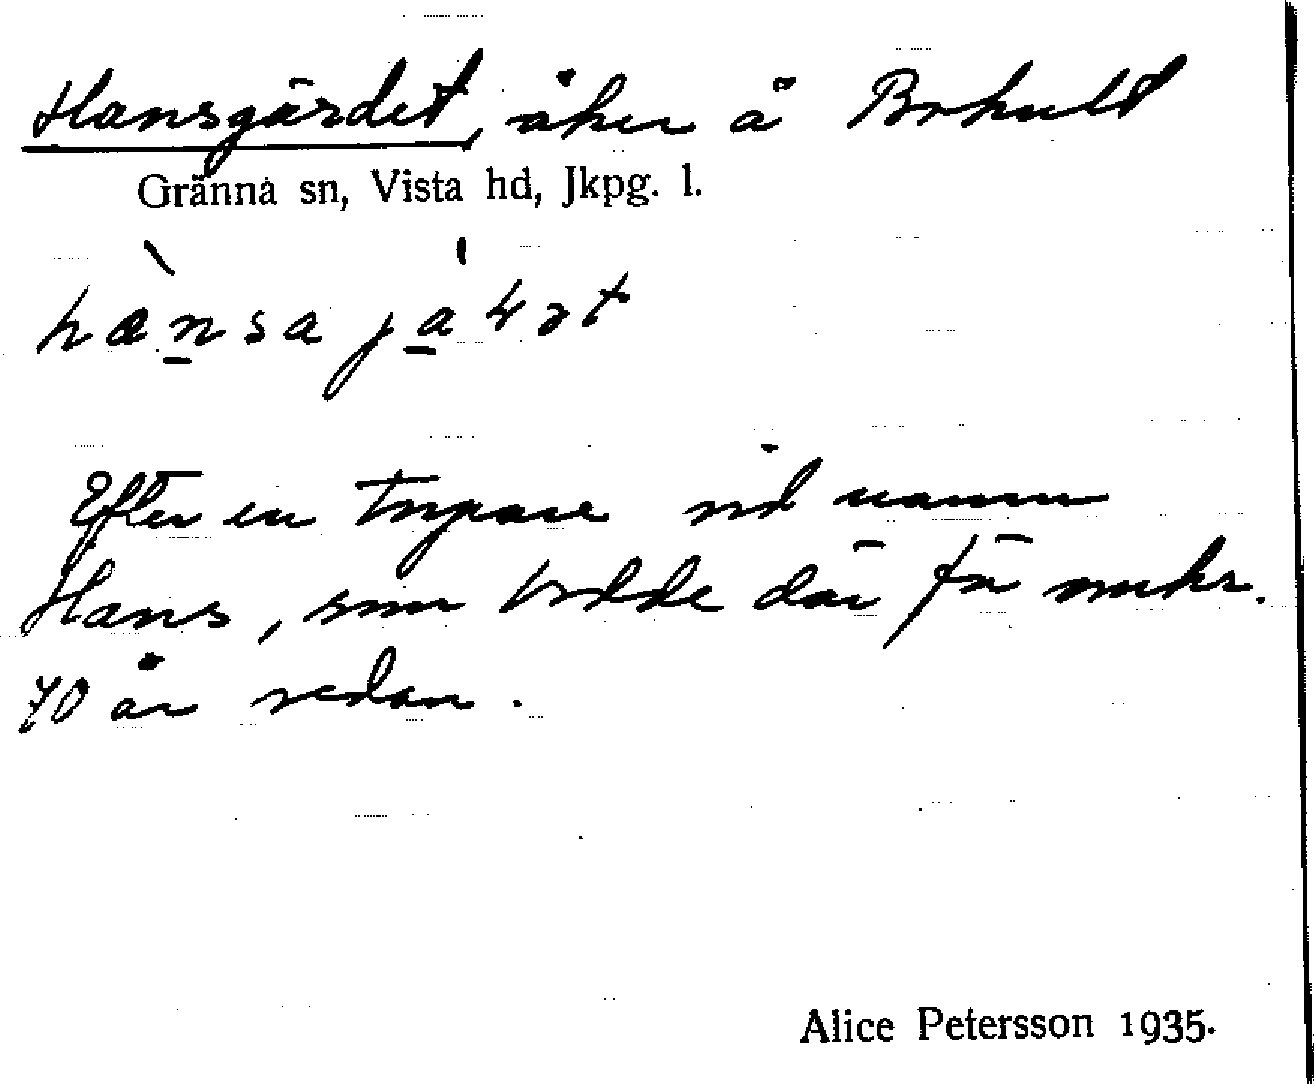 Hansgärdet, åker å Bohult
Gränna sn, Vista hd, Jkpg. l.
Efter en torpare vid namn
Hans, som bodde där för omkr.
70 år sedan.
Alice Petersson 1935.